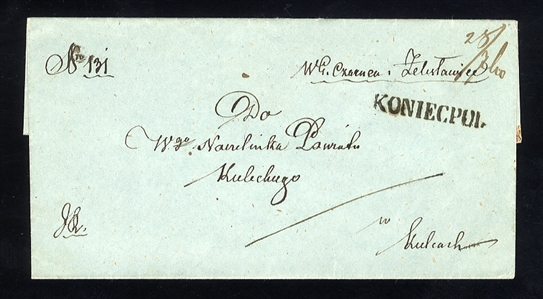 No 131
W G. Czarnca i Żelisławice
KONIECPOL
Do
Wgo Naczelnika Powiatu
Kieleckiego
w
Kielcach